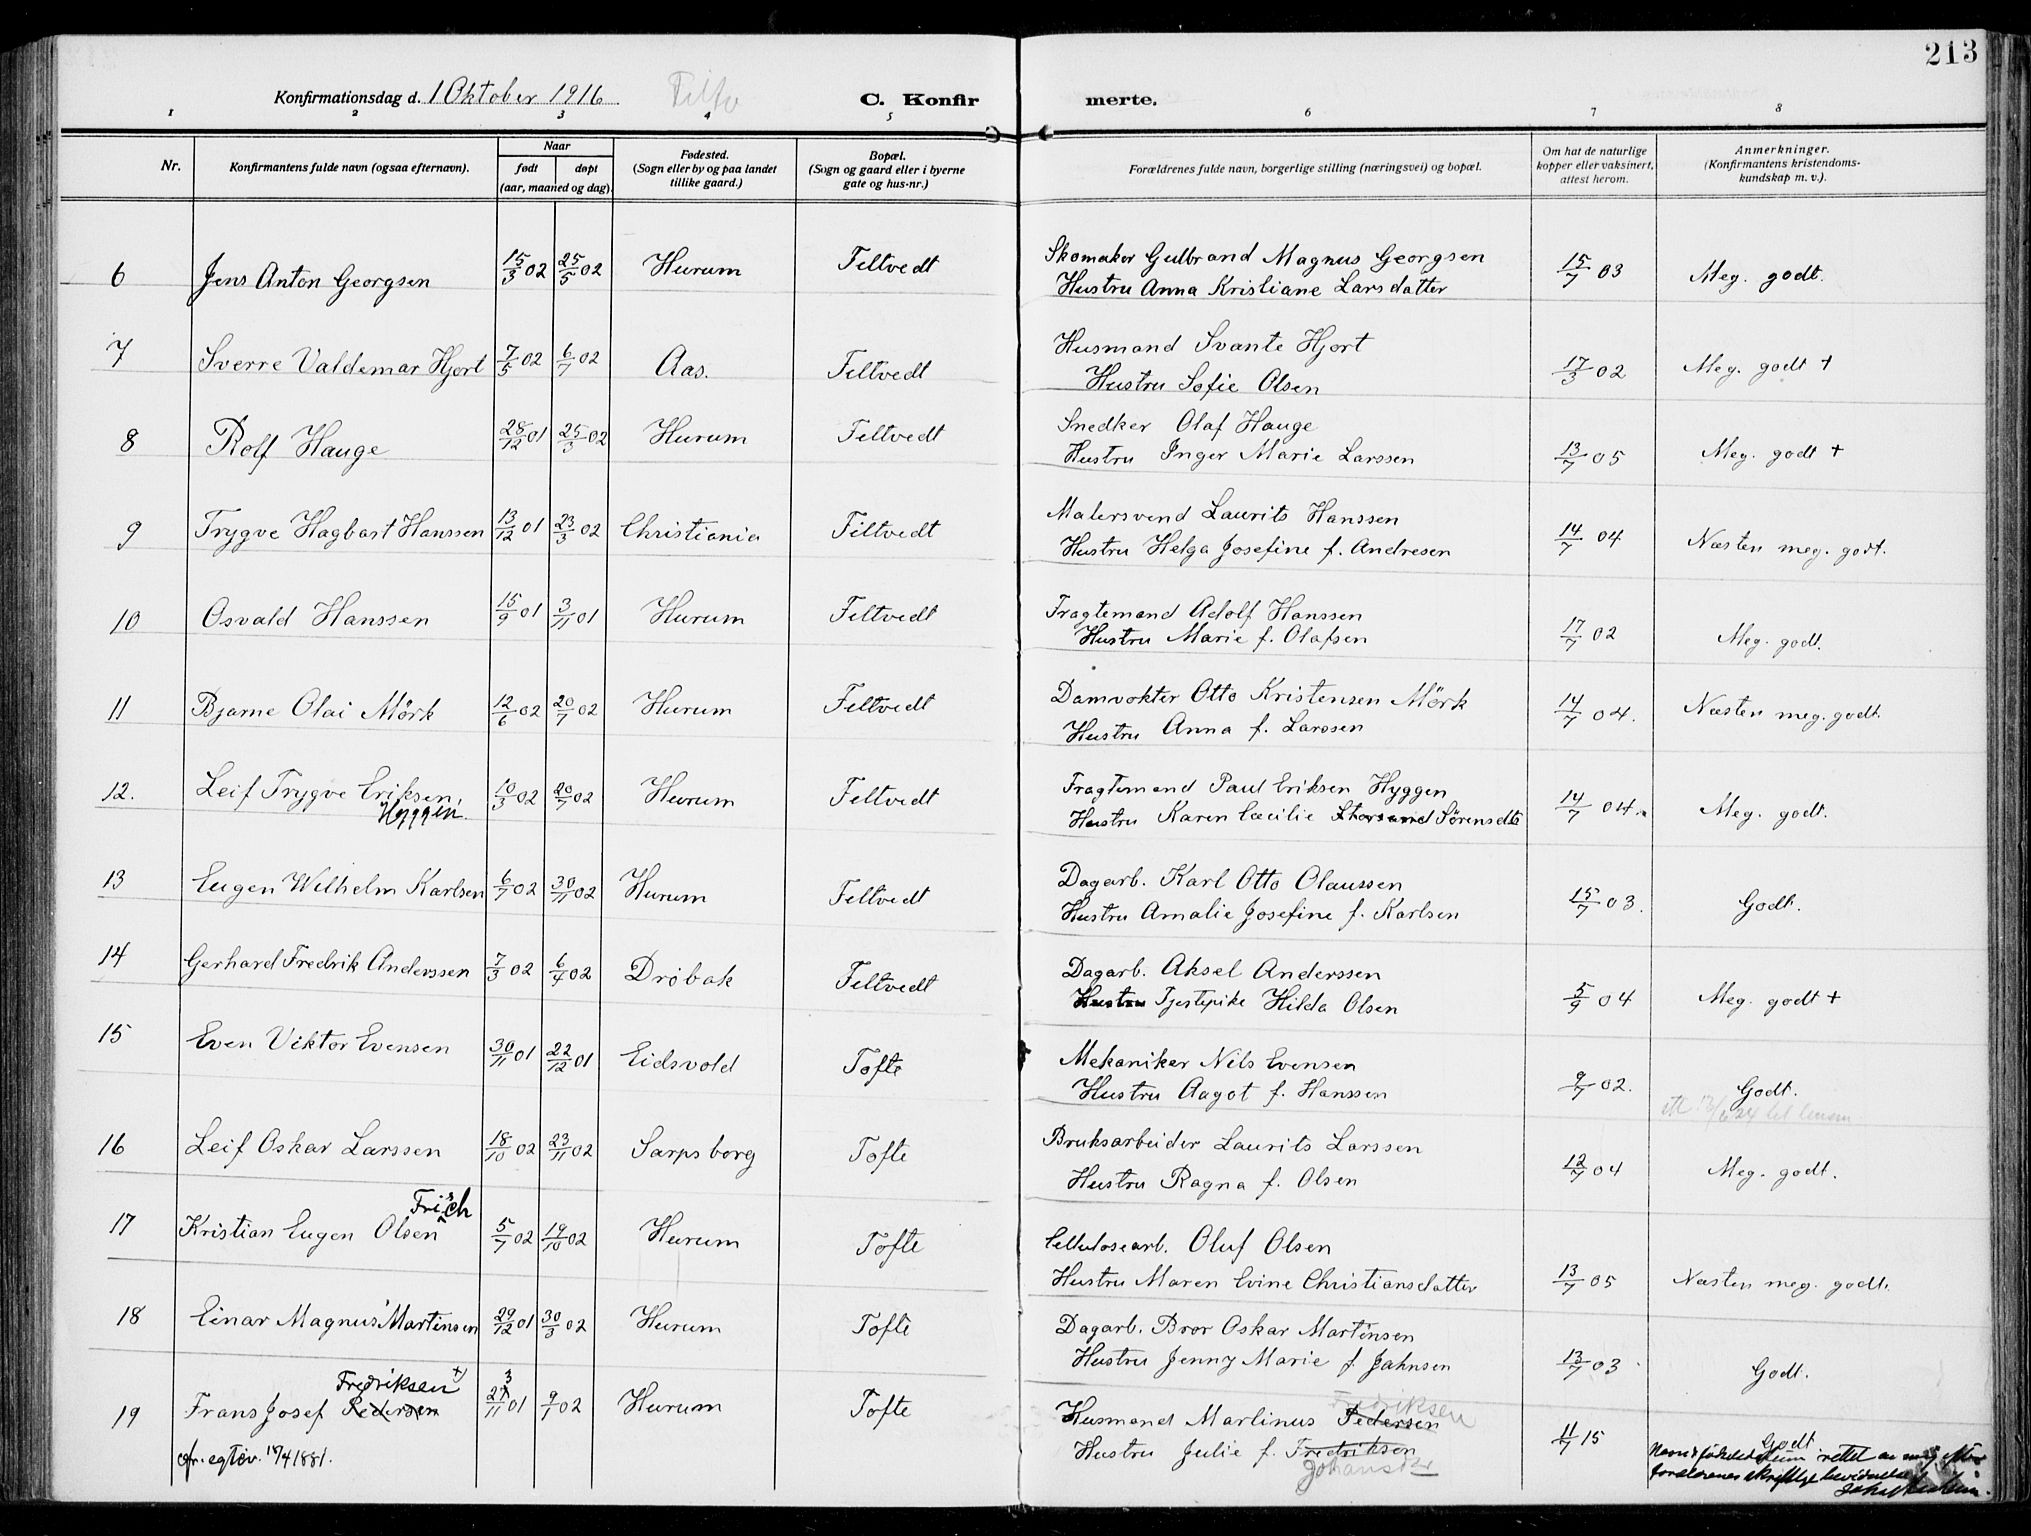 213
Konfirmationsdag d. 1 Oktober 1916. C. Konfirmerte.
1 2 3 4 5 6 7 8
Nr. Konfirmantens fulde navn (ogsaa efternavn). Naar født døpt (aar, maaned og dag). Fødested. (Sogn eller by og paa landet tillike gaard.) Bopæl. (Sogn og gaard eller i byerne gate og hus-nr.) Forældrenes fulde navn, borgerlige stilling (næringsvei) og bopæl. Om hat de naturlige kopper eller vaksinert, attest herom. Anmerkninger. (Konfirmantens kristendomskundskap m. v.).
6 Jens Anton Georgsen 15/3 02 25/5 02 Hurum Filtvedt Skomaker Gulbrand Magnus Georgsen 15/7 03 Meg. godt.
Hustru Anna Kristiane Larsdatter
7 Sverre Valdemar Hjort 7/5 02 6/7 02 Aas. Filtvedt Husmand Svante Hjort 17/3 02 Meg. godt +
Hustru Sofie Olsen
8 Rolf Hauge 28/12 01 25/3 02 Hurum Filtvedt Snedker Olaf Hauge 13/7 05 Meg. godt +
Hustru Inger Marie Larssen
9 Trygve Hagbart Hanssen 13/12 01 23/3 02 Christiania Filtvedt Malersvend Laurits Hanssen 14/7 04 Næsten meg. godt.
Hustru Helga Josefine f. Andresen
10 Osvald Hanssen 15/9 01 3/11 01 Hurum Filtvedt Fragtemand Adolf Hanssen 17/7 02 Meg. godt.
Hustru Marie f. Olafsen
11 Bjarne Olai Mörk 12/6 02 20/7 02 Hurum Filtvedt Damvokter Otto Kristensen Mörk 14/7 04. Næsten meg. godt.
Hustru Anna f. Larssen
12. Leif Trygve Eriksen, Hyggen 10/3 02 20/7 02 Hurum Filtvedt Fragtemand Paul Eriksen Hyggen 14/7 04. Meg. godt.
Hustru Karen Cæcilie Sørensdtr
13 Eugen Wilhelm Karlsen 6/7 02 30/11 02 Hurum Filtvedt Dagarb. Karl Otto Olaussen 15/7 03. Godt.
Hustru Amalie Josefine f. Karlsen
14 Gerhard Fredrik Anderssen 7/3 02 6/4 02 Drøbak Filtvedt Dagarb. Aksel Anderssen 5/9 04 Meg. godt +
Hustru Tjestepike Hilda Olsen
15 Even Viktor Evensen 30/11 01 22/12 01 Eidsvold Tofte Mekaniker Nils Evensen 9/7 02. Godt.
Hustru Aagot f. Hanssen
16 Leif Oskar Larssen 18/10 02 23/11 02 Sarpsborg Tofte Bruksarbeider Laurits Larssen 12/7 04 Meg. godt.
Hustru Ragna f. Olsen
Frisch
17 Kristian Eugen Olsen 5/7 02 19/10 02 Hurum Tofte Cellulosearb. Oluf Olsen 13/7 05 Næsten meg. godt.
Hustru Maren Evine Christiansdatter
18 Einar Magnus Martinsen 29/12 01 30/3 02 Hurum Tofte Dagarb. Bror Oskar Martinsen 13/7 03 Godt.
Hustru Jenny Marie f. Jahnsen
Fredriksen +)
19 Frans Josef Pedersen 11 01 9/1 02 Hurum Tofte Husmand Martinus Pedersen Fredriksen 11/7 15 Godt
Hustru Julie f. Fredriksen